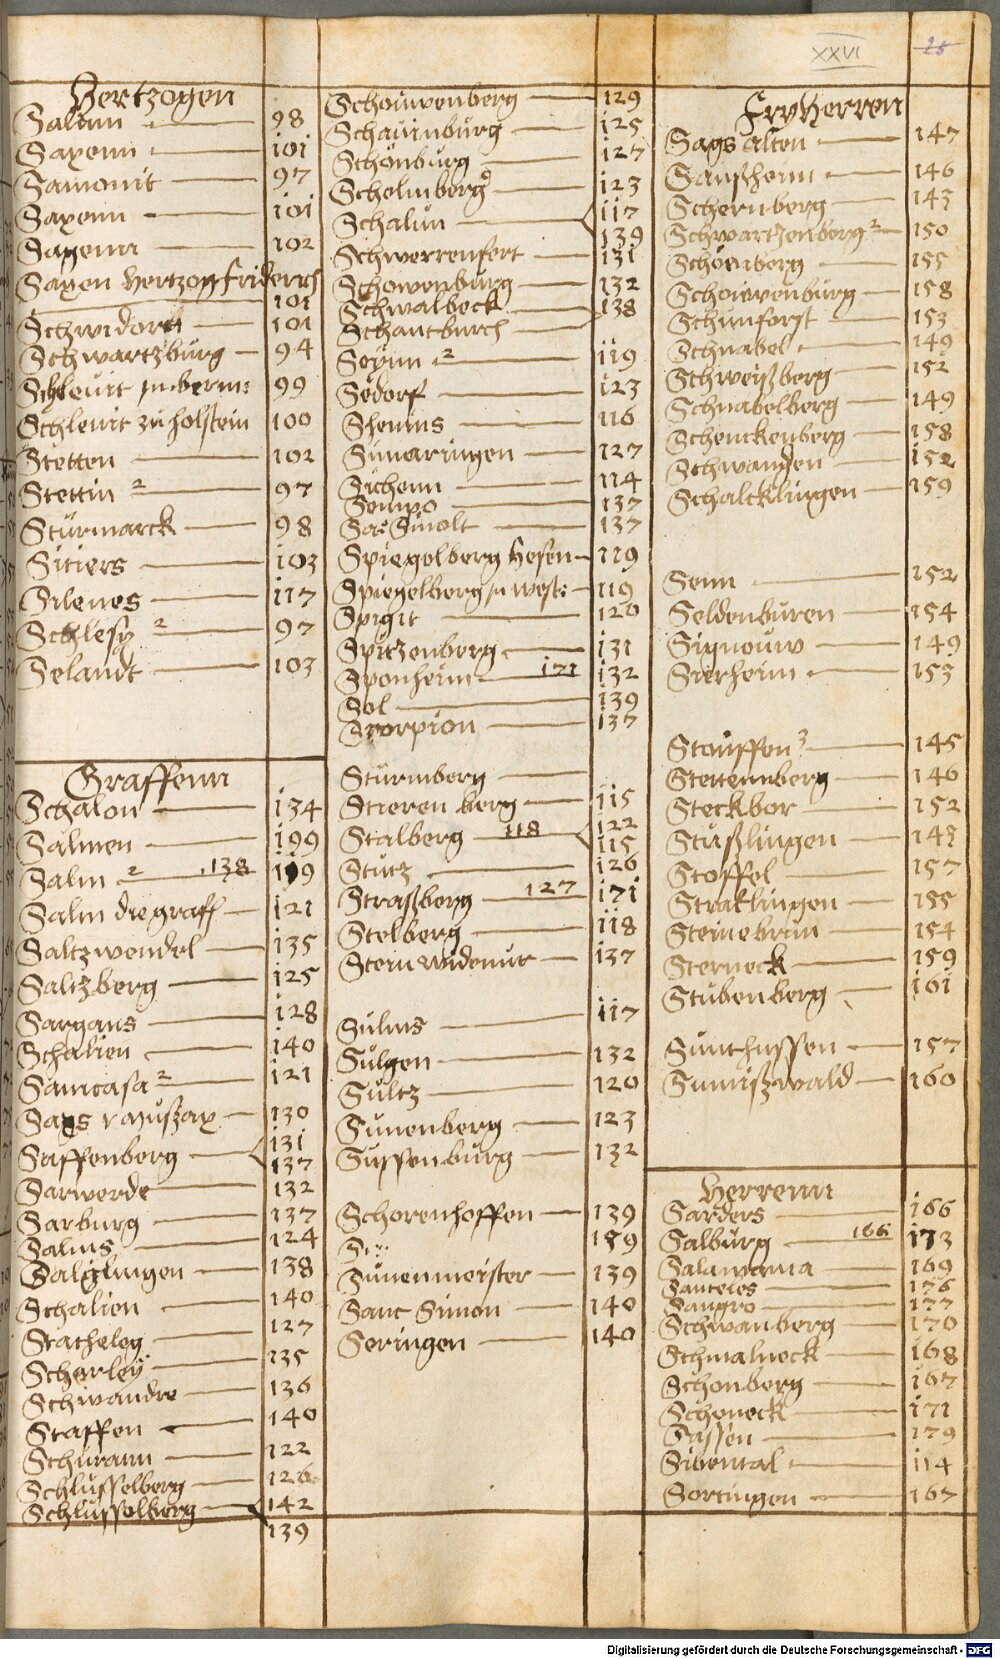 XXVI
25
Hertzogen
Salinn 98
Saxenn 101
Samonit 97
Saxenn 101
Sagenn 102
Saxen Hertzog friderich
101
Schwidorff 101
Schwartzburg 94
Schlewit 99
Schlewit zu holstein 100
Stetten 102
Stettin 2 97
Sturmarck 98
Sitiers 103
Silenes 117
Schlesy 2 97
Selandt 103
Graffenn
Schalon 134
Salmen 199
Salm 2 138 119
Salm die graff 121
Saltzwendel 135
Saltzberg 125
Sargans 128
Schalien 140
Samcasa 2 121
Sags v Mußax 130
Saffenberg 131
137
Sarwerde 132
Sarburg 137
Salms 124
Salglingen 138
Schalien 140
Stacheleg 127
Scharley 135
Schwandre 136
Staffen 140
Schurann 122
Schlusselberg 126
Schlusselberg 142
139
Schouwenberg 129
Schauinburg 125
Schönburg 127
Schelmberg 123
Schalun 117
139
Schwerrenfert 131
Schowenburg 132
Schwalbeck 138
Schantburch
Seyim 2 119
Sedorf 123
Shenins 116
Simaringen 127
Sichem 114
Sempo 137
Sas Sinolt 137
Spiegelberg Hesen 119
Spiegelberg in west: 119
Spigit 120
Spitzenberg 131
Sponheim 121 132
Sol 139
Scorpion 137
Sturmberg
Stieren berg 115
Stalberg 118 122
115
Stutz 126
Straßberg 127 171
Stelberg 118
Stern widemut 137
Sulms 117
Sulgen 132
Sultz 120
Sunenberg 123
Sussenburg 132
Schorenhoffen 139
179
Sunenmeister 139
Sanc Simon 140
Seringen 140
Fryherren
Sags alten 147
Sanßheim 146
Schernberg 143
Schwartzenberg 2 150
Schönberg 155
Schouwenburg 158
Schunforst 153
Schnabel 149
Schweißberg 152
Schnabelberg 149
Schenckenberg 158
Schwanden 152
Schalcklingen 159
Senn 152
Seldenburen 154
Signouw 149
Sierheim 153
Stouffen 3 145
Stettennberg 146
Steckbor 152
Stußlingen 143
Stoffel 157
Straklingen 155
Steinebrun 154
Sterneck 159
Stubenberg 101
Sunthussen 157
Sumißwald 160
Herrenn
Sarders 166
Salburg 166 173
Salamanna 169
Santeies 176
Sangro 177
Schwanberg 170
Schmalneck 168
Schonberg 167
Schoneck 171
Sassen 179
Sibental 114
Sortingen 167
Digitalisierung gefördert durch die Deutsche Forschungsgemeinschaft - DFG